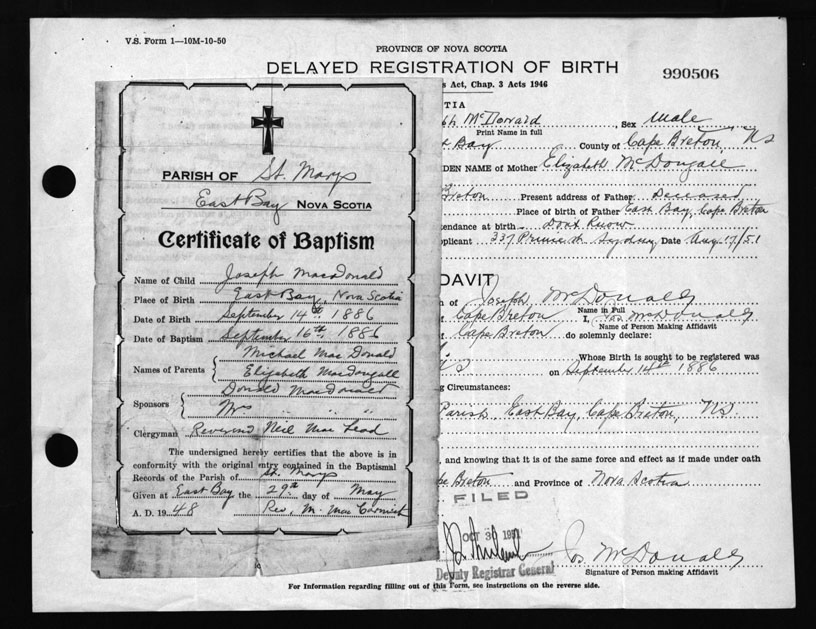 V.S. Form 1—10M-10-50
PROVINCE OF NOVA SCOTIA
DELAYED REGISTRATION OF BIRTH
990506
s Act, Chap. 3 Acts 1946
PARISH OF St. Marys
East Bay NOVA SCOTIA
Certificate of Baptism
Name of Child Joseph MacDonald
Place of Birth East Bay, Nova Scotia
Date of Birth September 14th 1886
Date of Baptism September 16th, 1886
Names of Parents { Michael MacDonald
Elizabeth MacDougall
Sponsors { Donald MacDonald
Mrs " " "
Clergyman Reverend Neil MacLeod
The undersigned hereby certifies that the above is in
conformity with the original entry contained in the Baptismal
Records of the Parish of St. Marys
Given at East Bay the 29th day of May
A. D. 1948 Rev. M. MacCormick
TIA
ph McDonald Sex male
Print Name in full
t Bay County of Cape Breton, NS
DEN NAME of Mother Elizabeth McDougall
Breton Present address of Father Deceased
Place of birth of Father East Bay, Cape Breton
tendance at birth Dont Know
plicant 337 Prince St Sydney Date Aug 17/51
DAVIT
n of Joseph McDonald
Name in Full
Cape Breton I, Jos McDonald
Name of Person Making Affidavit
Cape Breton do solemnly declare:
Whose Birth is sought to be registered was
on September 14th 1886
g Circumstances:
Parish, East Bay, Cape Breton, NS
and knowing that it is of the same force and effect as if made under oath
pe Breton and Province of Nova Scotia
FILED
OCT 30 1951
Deputy Registrar General
Jos. McDonald
Signature of Person making Affidavit
For Information regarding filling out of this Form, see instructions on the reverse side.